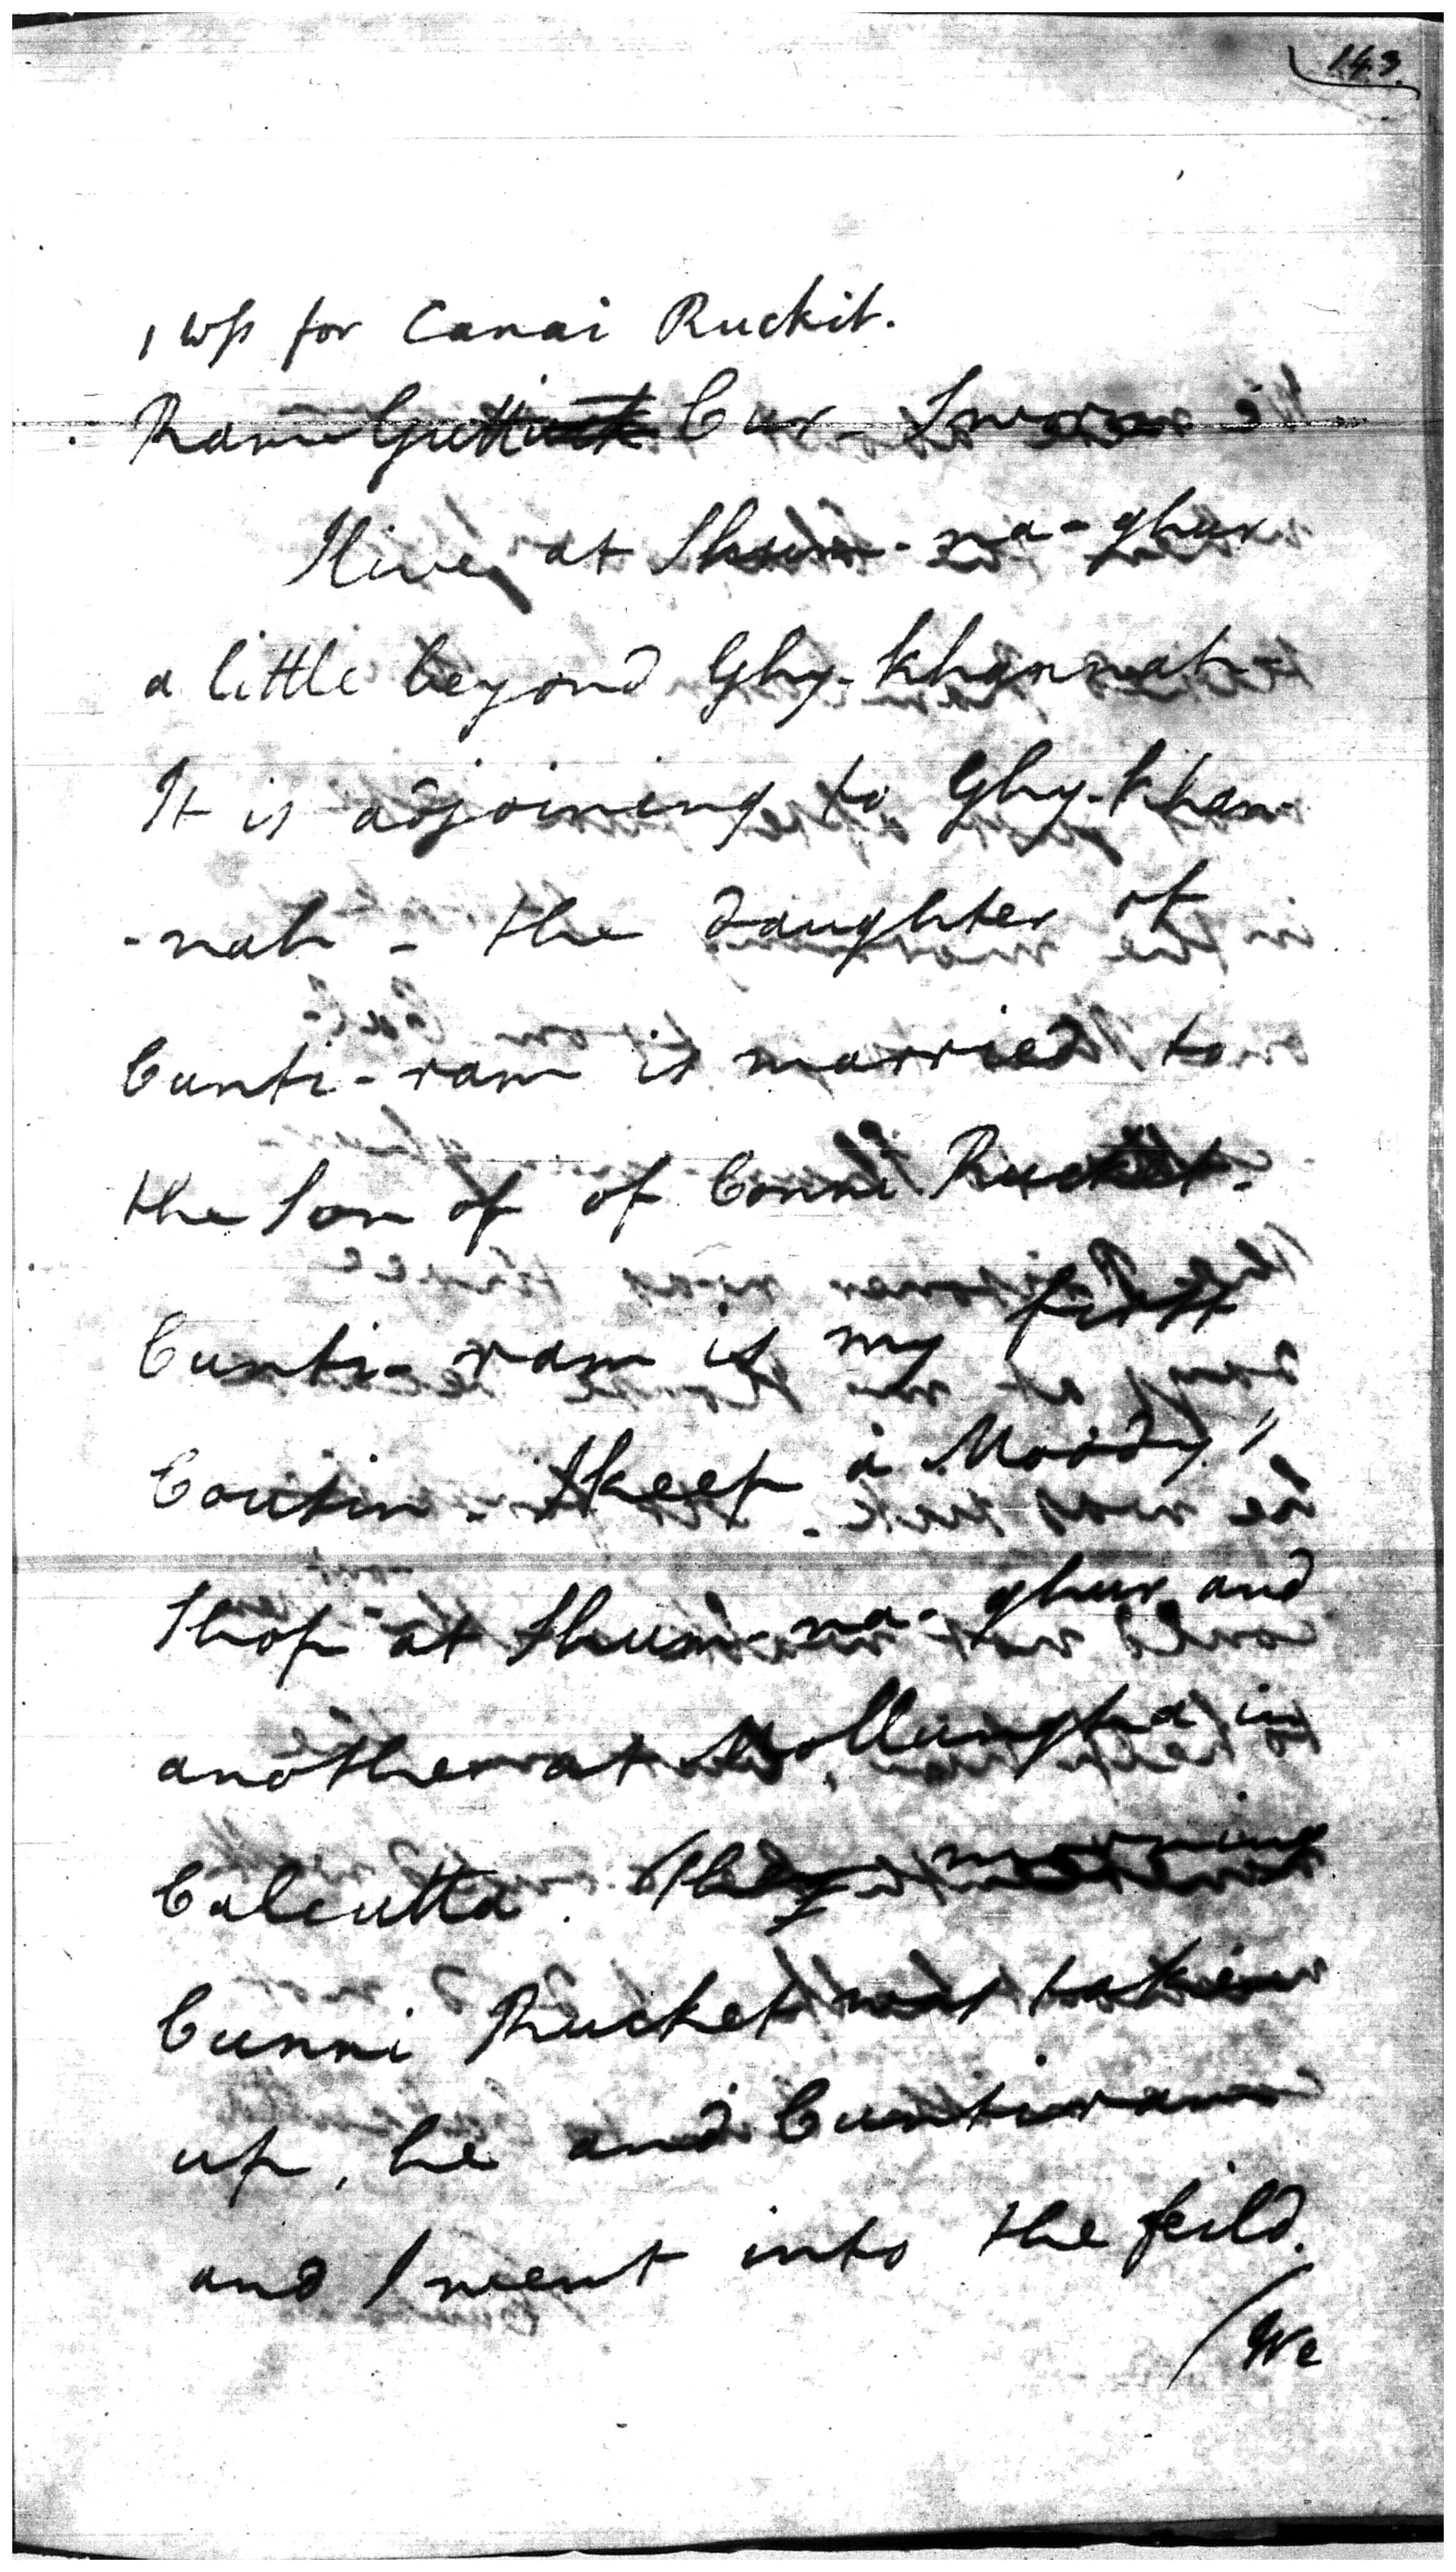 143.
1 Wss for Canai Ruckit.
Ram Cur - Sworn
I live at Shum-na-ghur
a little beyond Ghy-khannah -
It is adjoining to Ghy-khan-
-nah - the daughter of
Cunti-ram is married to
the Son of of Conni Rucket.
Cunti-ram is my first
Cousin. I keep a Moody"
Shop at Shum-na-ghur and
another at Mollungha in
Calcutta. The morning
Cunni Rucket was taken
up, he and Cuntiram
and I went into the feild.
/We